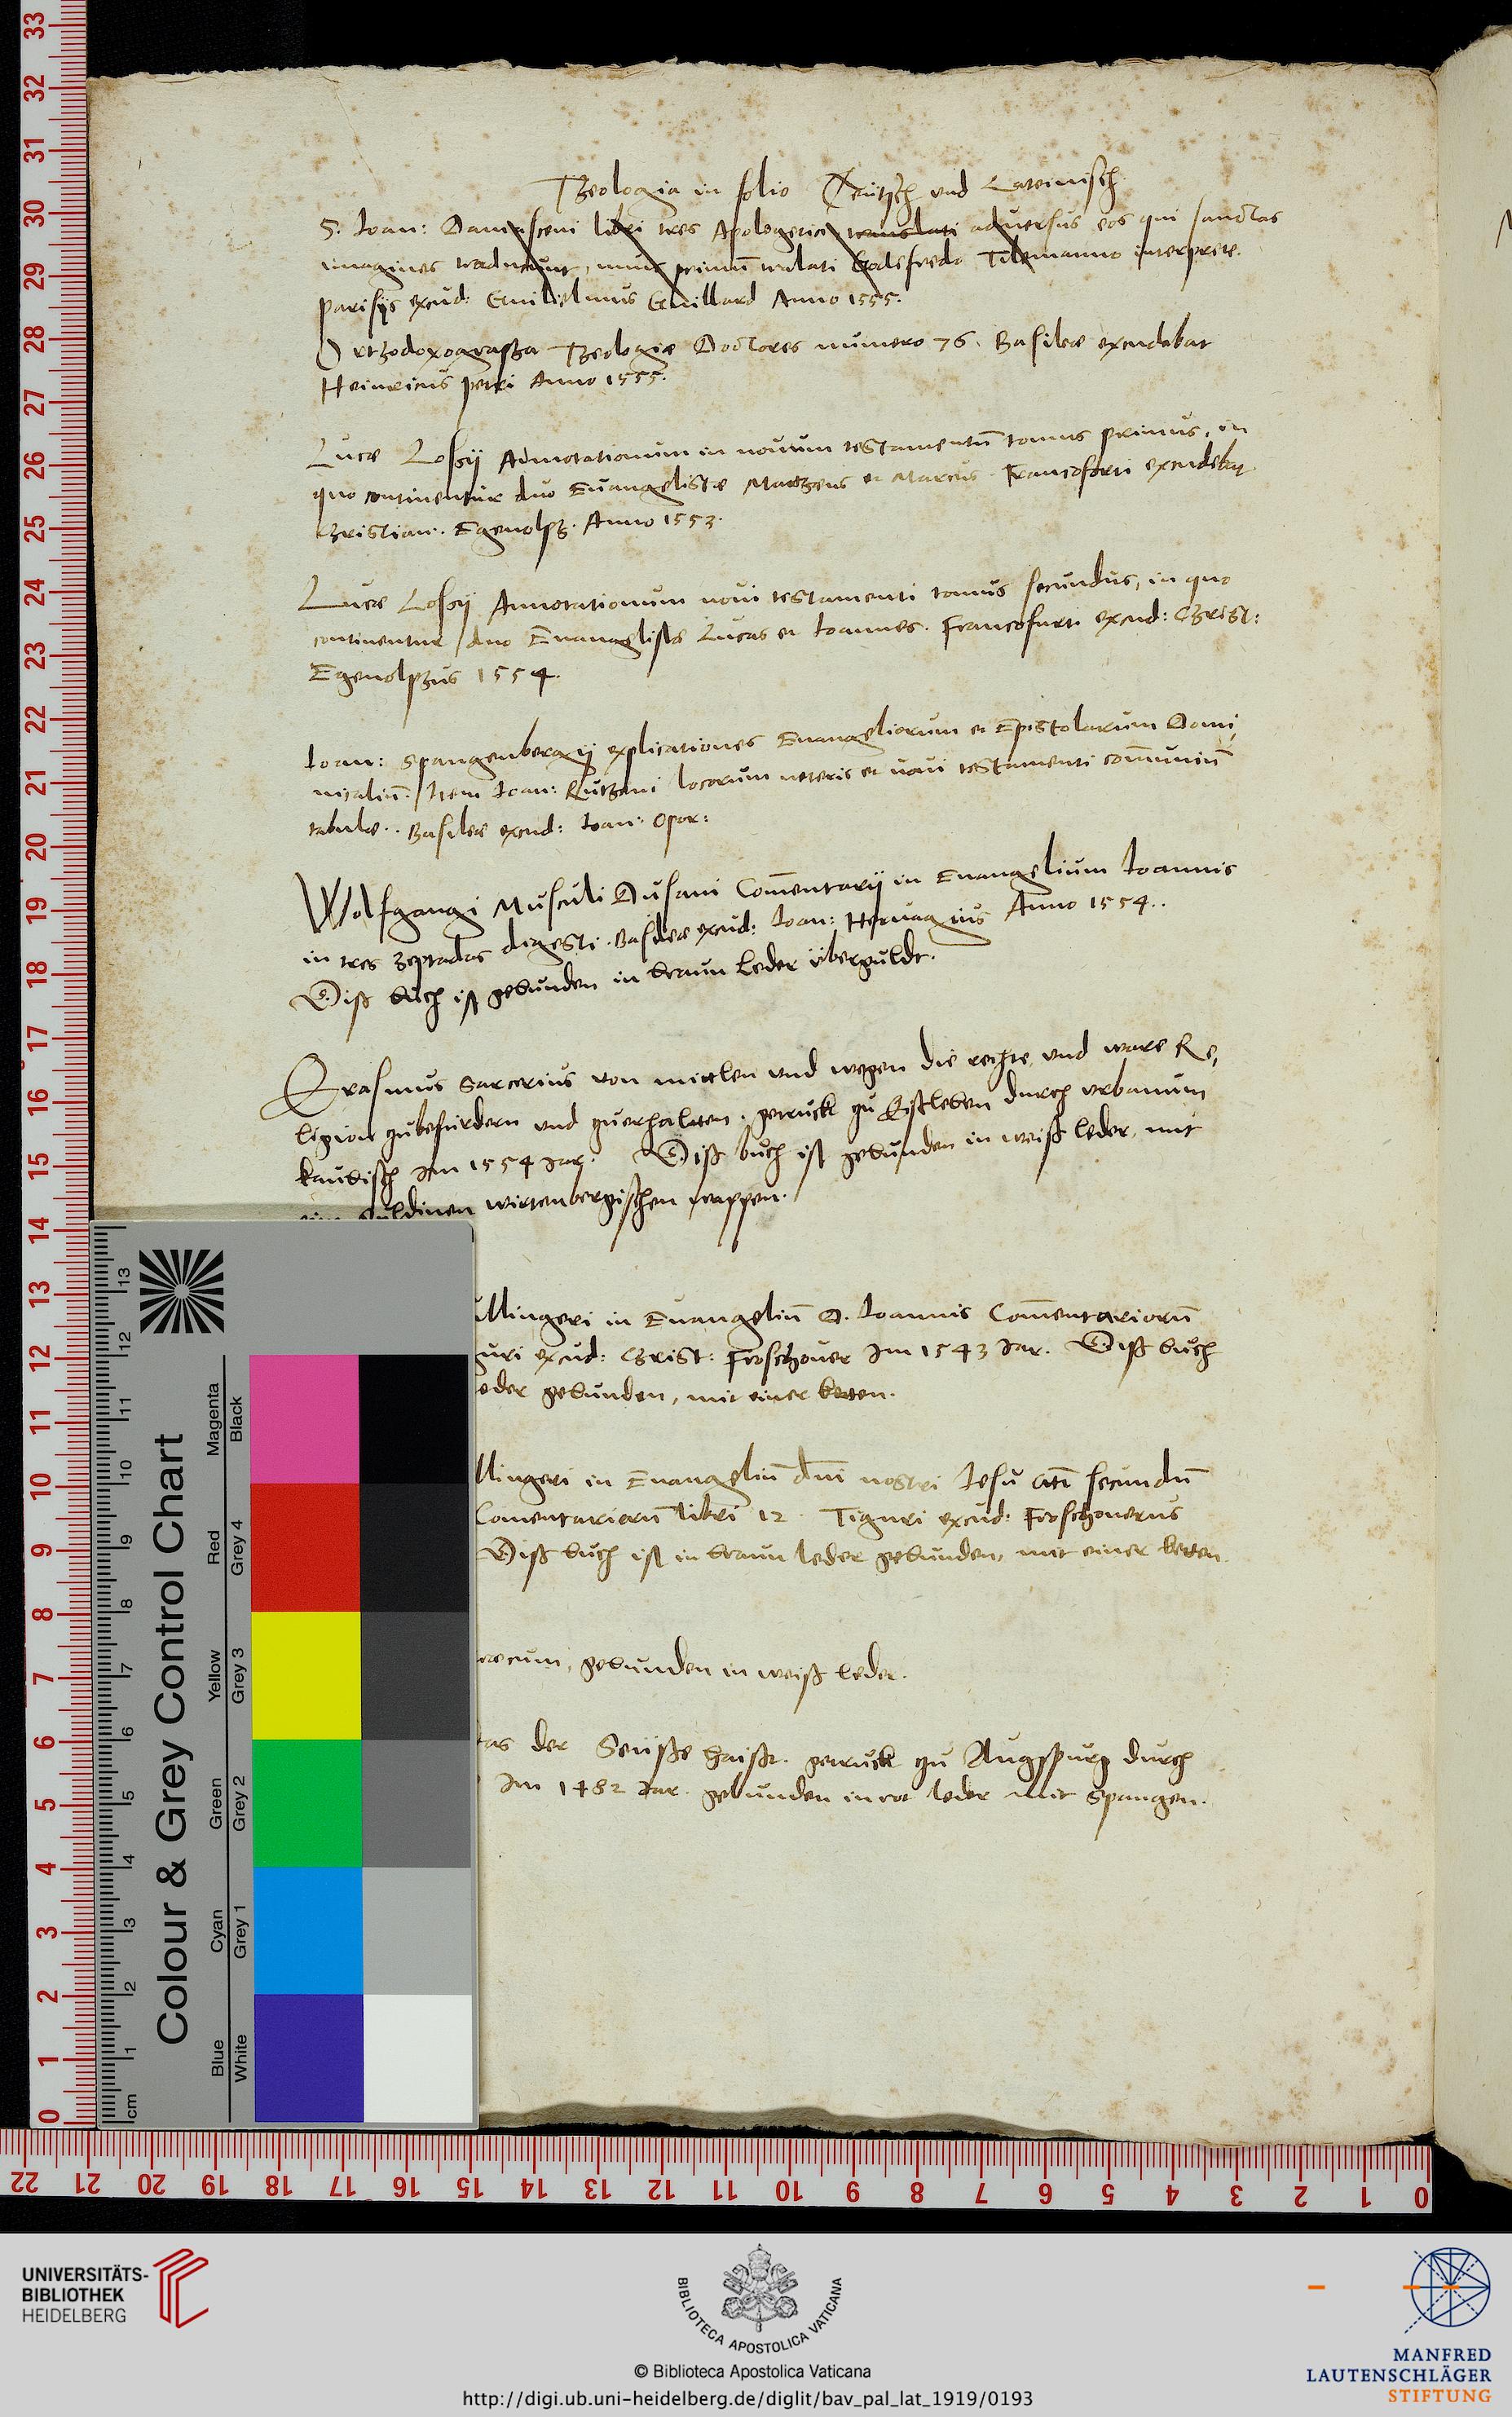 Theologia in folio Teütsch vnd Lateinisch
S. Ioan: Damasceni libri tres Apologetici translati aduersus eos qui sanctas
imagines traducunt, nunc primū tralati Godefredo Tilemanno interprete.
Parisijs excud: Guilielmus Guillard Anno 1555.
Orthodoxographa Theologiæ Doctores numero 76. Basileæ excudebat
Heinricus petri Anno 1555.
Lucæ Loßij Adnotationum in nouum testamentū tomus primus, in
quo continentur duo Euangelistæ Matthæus et Marcus. Francoforti excudebat
Christian. Egenolph. Anno 1553.
Lucæ Loßij Annotationum noui testamenti tomus secundus, in quo
continentur duo Euangelistæ Lucas et Ioannes. Francofurti excud: Christ:
Egenolphus 1554.
Ioan: Spangenbergij explicationes Euangeliorum et Epistolarum Domi,
nicaliū. Item Ioan: locorum ueteris et noui testamenti com̄uniū
tabulæ.. Basileæ excud: Ioan: Opor:
Wolfgangi Musculi Dusani Com̄entarij in Euangelium Ioannis
in tres heptadas digesti. Basileæ excud: Ioan: Heruagius Anno 1554..
Diß buch ist gebunden in braun leder überguldt.
Erasmus Sarcerius von mittlen vnd wegen die rechte vnd ware Re,
ligion zubefürdern vnd zuerhalten. getruckt zu Eißleben durch vrbanum
kaubisch Im 1554 Jar. Diß buch ist gebunden in weiß leder, mit
guldinen wirtenbergischen wappen.
ullingeri in Euangeliū D. Ioannis Com̄entariorū
guri excud: Christ: Froschouer Im 1543 Jar. Diß buch
leder gebunden, mit einer ketten.
llingeri in Euangeliū dn̄i nostri Iesu secundū
Com̄entariorū libri 12. Tiguri excud: Froschouerus
Diß buch ist in braun leder gebunden, mit einer ketten.
ræcum, gebunden in weiß leder.
das der Seüße haißt. getruckt zu Augspurg durch
Im 1482 Jar. gebunden in rot leder mit Spangen.
Colour & Grey Control Chart
Magenta
Black
Red
Grey 4
Yellow
Grey 3
Green
Grey 2
Cyan
Grey 1
Blue
White
cm
UNIVERSITÄTS-
BIBLIOTHEK
HEIDELBERG
BIBLIOTECA APOSTOLICA VATICANA
© Biblioteca Apostolica Vaticana
http://digi.ub.uni-heidelberg.de/diglit/bav_pal_lat_1919/0193
MANFRED
LAUTENSCHLÄGER
STIFTUNG